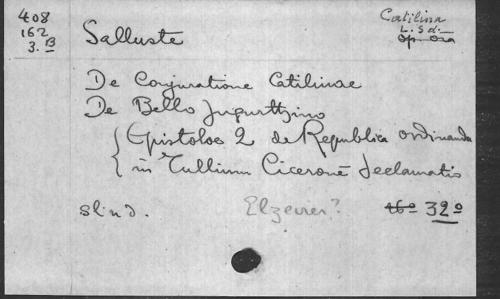 408
162
3. B
Salluste
Catilina
L. S d.
Opera
De Conjuratione Catilinae
De Bello Jugurthino
Epistolae 2 de Republica ordinanda
in Tullium Ciceronē declamatio
sl nd.
Elzevier?
16° 32°